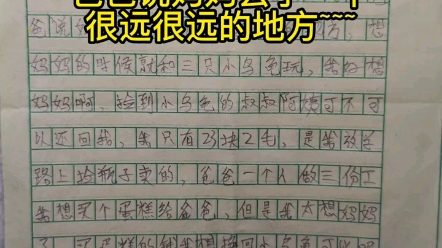 爸爸说妈妈去了一个
很远很远的地方~~~
妈妈的时候就和三只小乌龟玩，我好想
妈妈啊，捡到小乌龟的叔叔阿姨可不可
以还回我，我只有23块2毛，是我放学
路上捡瓶子卖的，爸爸一个人做三份工
我想买个蛋糕给爸爸，但是我太想妈妈